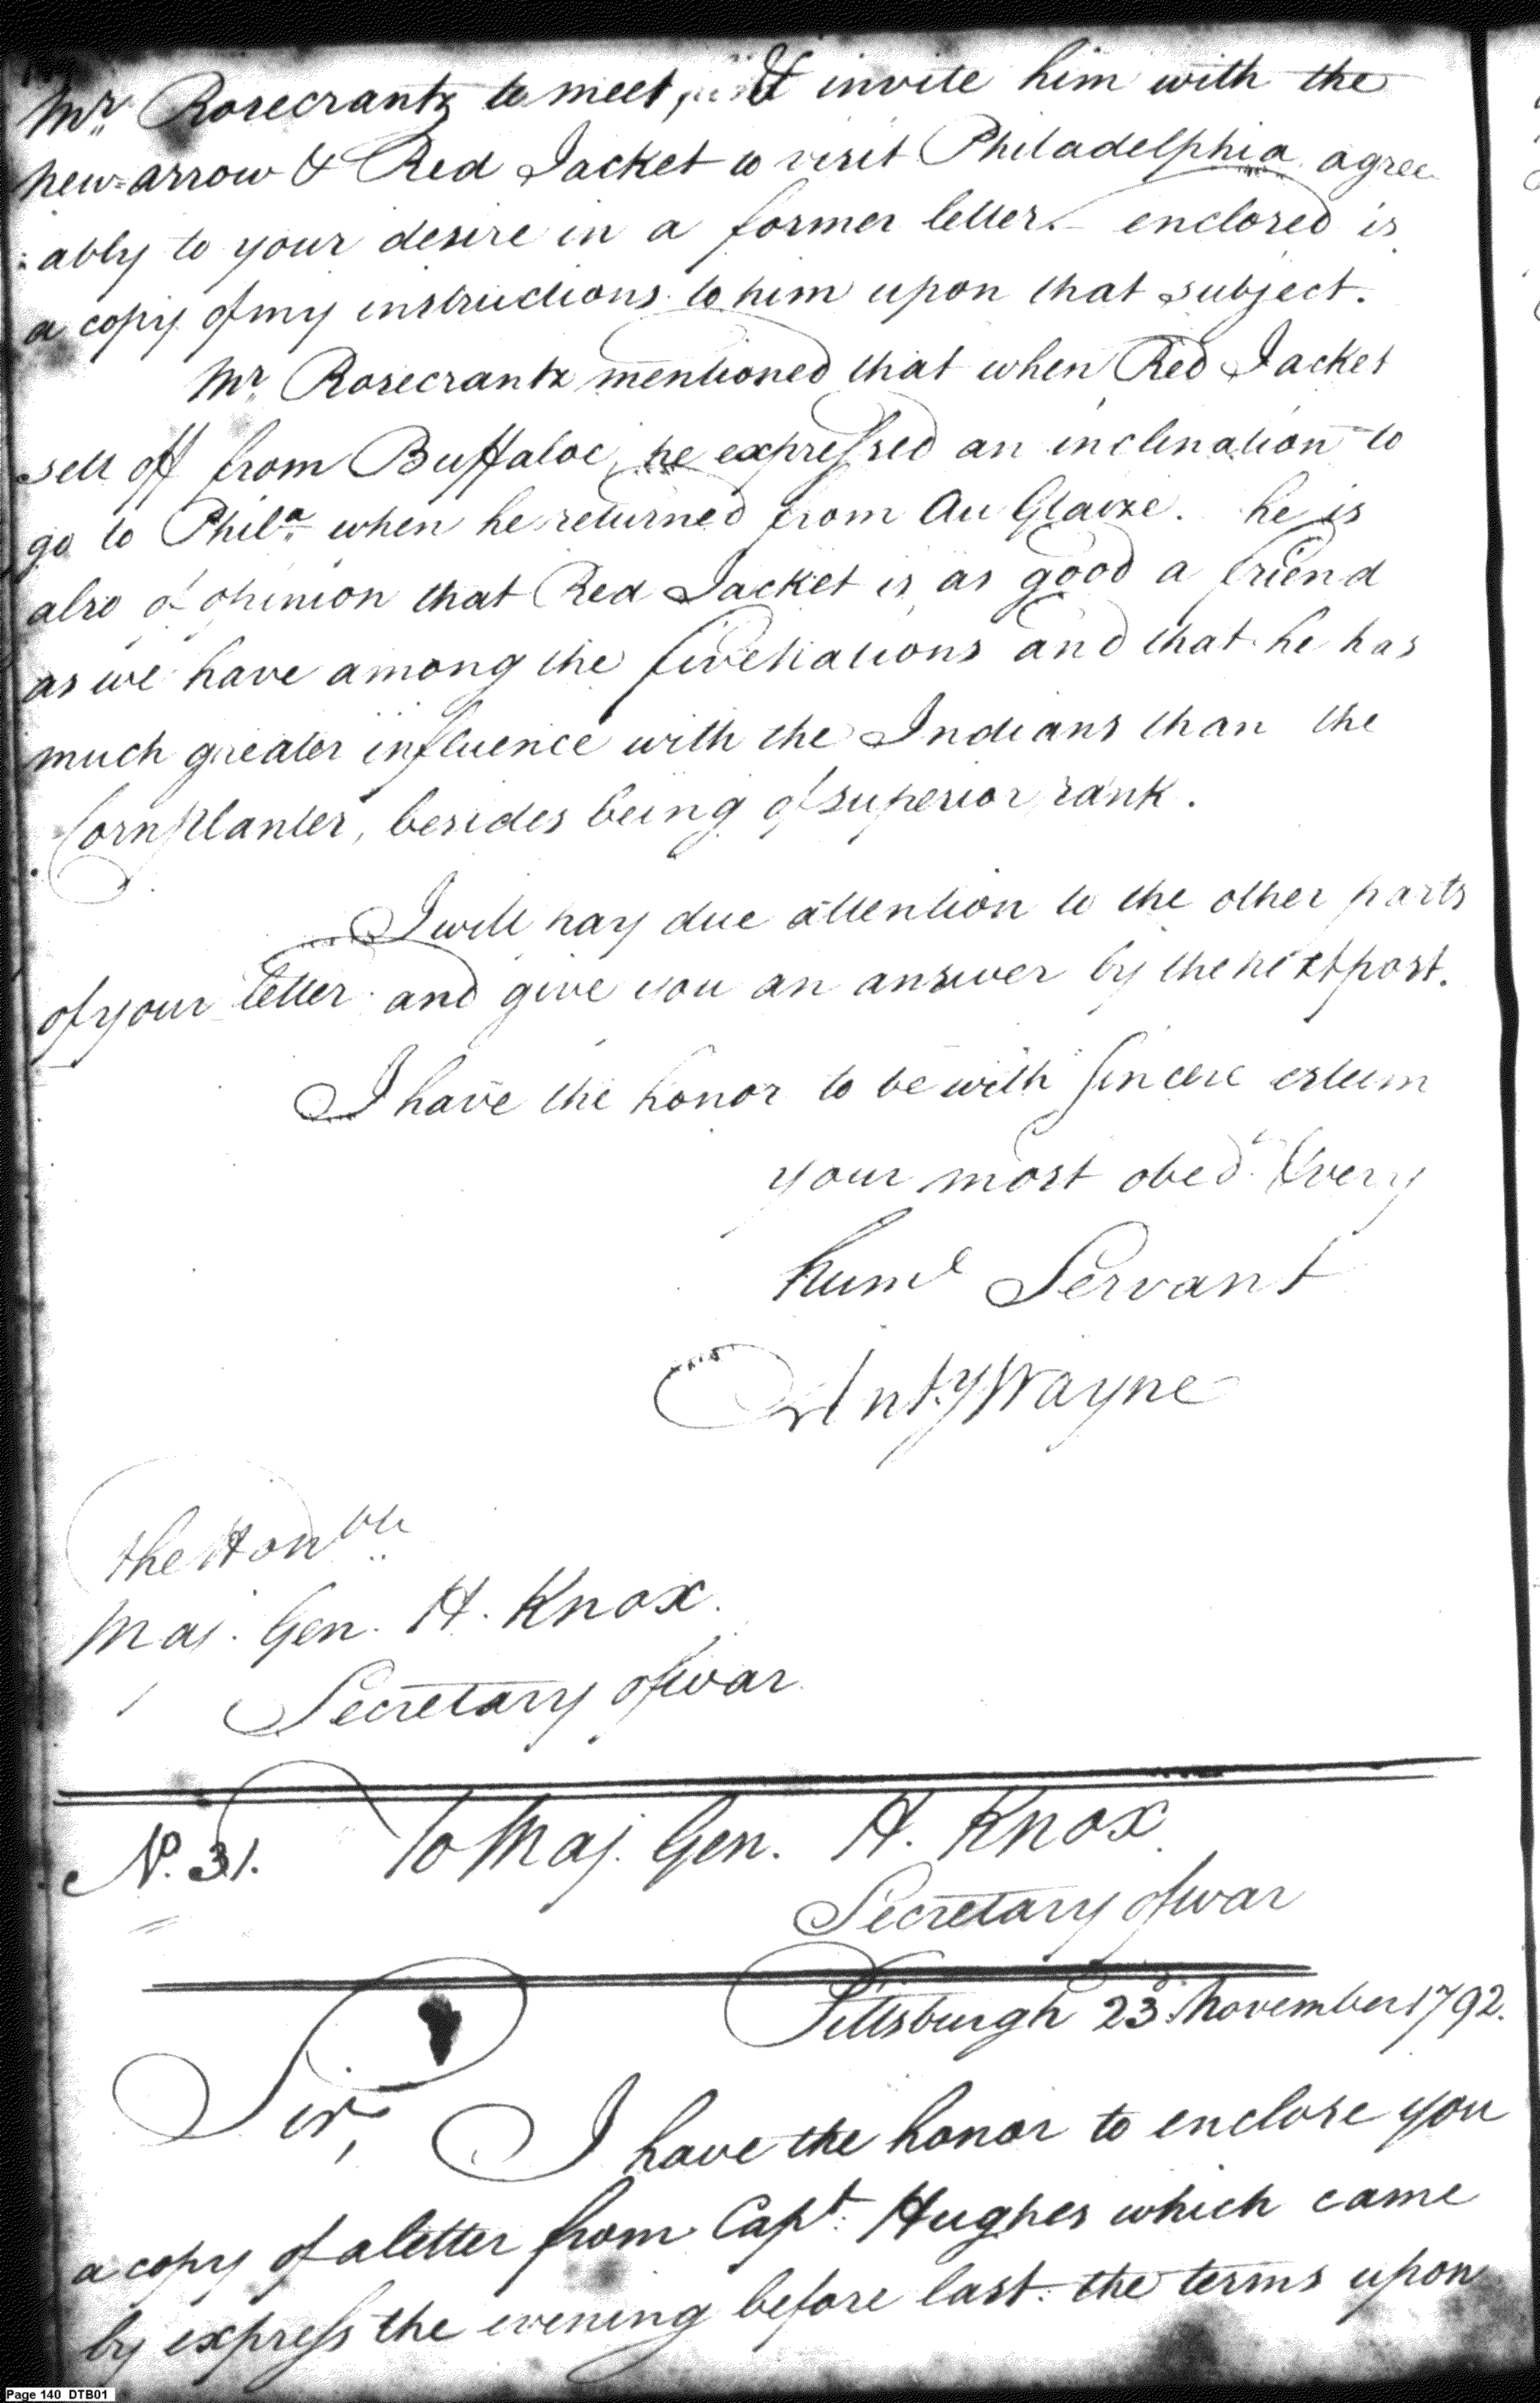 Mr. Rosecrantz to meet, & invite him with the
New=arrow & Red Jacket to visit Philadelphia agree
:ably to your desire in a former letter. enclosed is
a copy of my instructions to him upon that subject.
Mr. Rosecrantz mentioned that when Red Jacket
sett off from Buffaloe, he expressed an inclination to
go to Phila. when he returned from Au Glaize. he is
also of opinion that Red Jacket is as good a friend
as we have among the five Nations and that he has
much greater influence with the Indians than the
Cornplanter, besides being of superior rank.
I will pay due attention to the other parts
of your letter and give you an answer by the next post.
I have the honor to be with sincere esteem
your most obedt. & very
huml Servant
Anty Wayne
The Honble
Maj. Gen. H. Knox.
Secretary of war.
No. 31. To Maj. Gen. H. Knox
Secretary of war
Pittsburgh 23d. November 1792.
Sir,
I have the honor to enclose you
a copy of a letter from Capt. Hughes which came
by express the evening before last. the terms upon
Page 140 DTB01